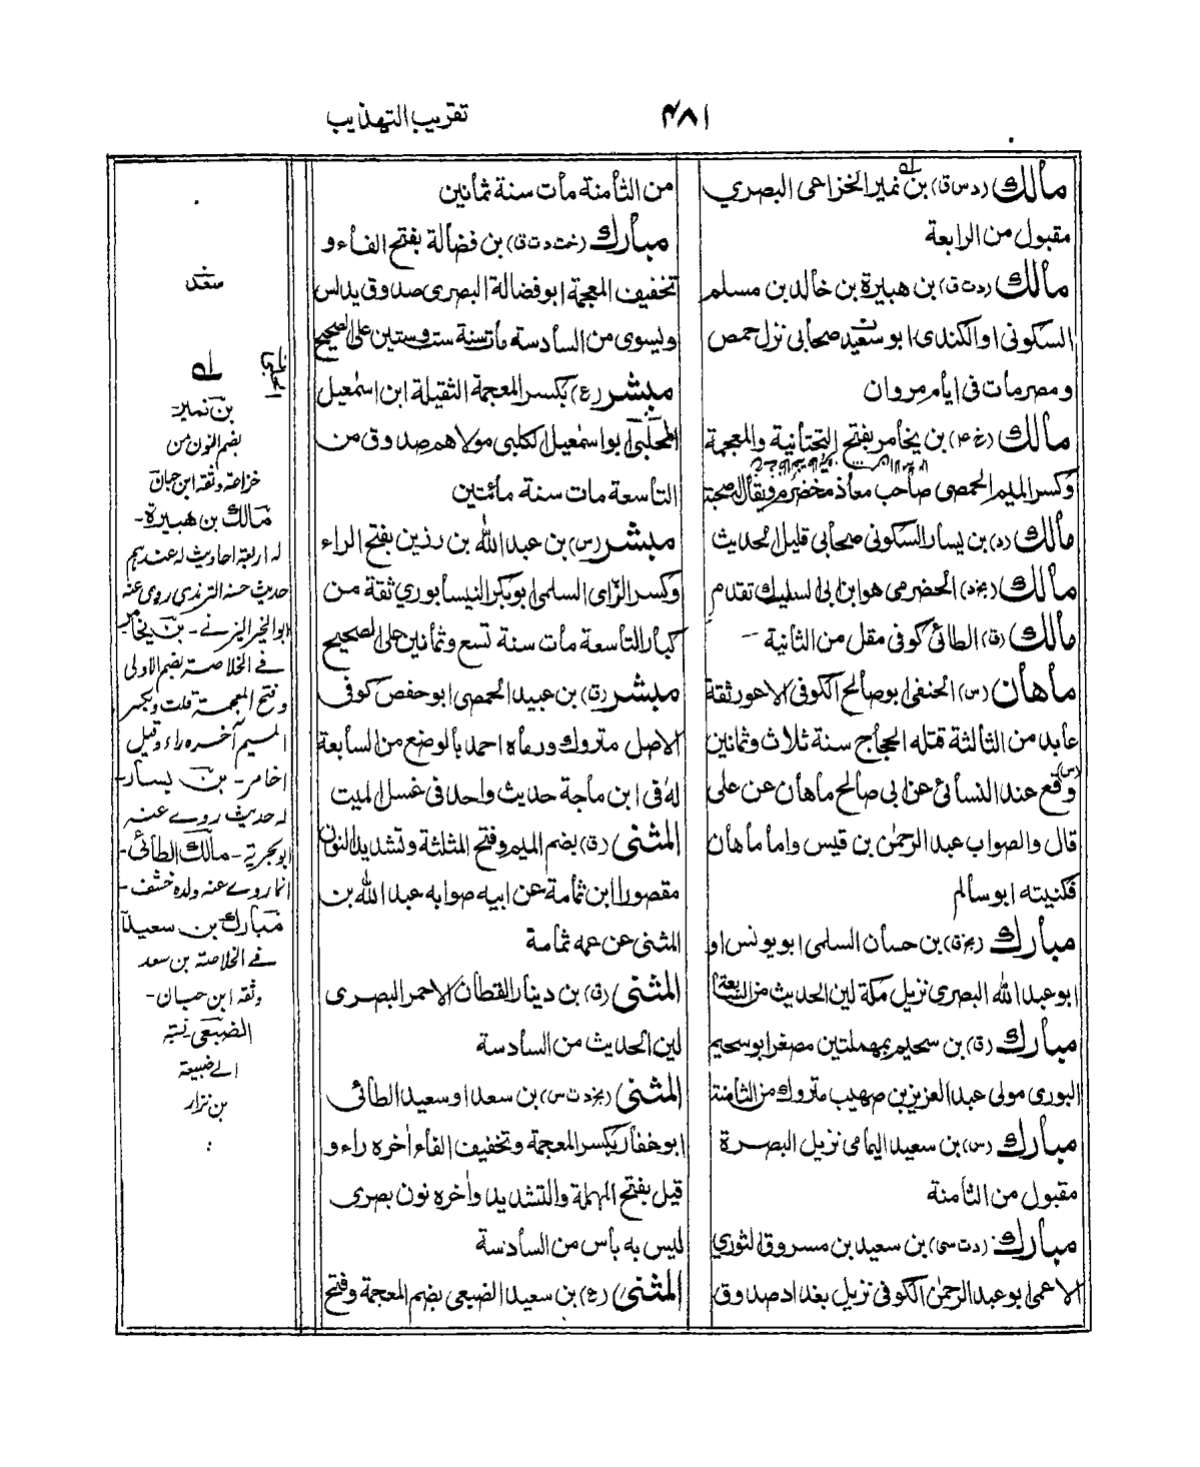 ۴۸۱
تقريب التهذيب
مالك (د س ق) بن نمير الخزاعى البصري
مقبول من الرابعة
مالك (د ت ق) بن هبيرة بن خالد بن مسلم
السكونى او الكندى ابو سعيد صحابى نزل حمص
ومصر مات فى ايام مروان
مالك (خ ۴) بن يخامر بفتح التحتانية والمعجمة
وكسر الميم الحمصى صاحب معاذ مخضرم ويقال له صحبة
مالك (د) بن يسار السكونى صحابى قليل الحديث
مالك (بخ د) الحضرمى هو ابن ابى السليك تقدم
مالك (ق) الطائى كوفى مقل من الثانية
ماهان (س) الحنفى ابو صالح الكوفى الاعور ثقة
عابد من الثالثة قتله الحجاج سنة ثلاث وثمانين
وقع عند النسائى عن ابى صالح ماهان عن على (س)
قال والصواب عبد الرحمٰن بن قيس واما ماهان
فكنيته ابو سالم
مبارك (بخ ق) بن حسان السلمى ابو يونس او
ابو عبد الله البصرى نزيل مكة لين الحديث من السابعة
مبارك (ق) بن سحيم بمهملتين مصغر ابو سحيم
البورى مولى عبد العزيز بن صهيب متروك من الثامنة
مبارك (س) بن سعيد اليمامى نزيل البصرة
مقبول من الثامنة
مبارك (د ت سى) بن سعيد بن مسروق الثوري
الاعمى ابو عبد الرحمٰن الكوفى نزيل بغداد صدوق
من الثامنة مات سنة ثمانين
مبارك (خت د ت ق) بن فضالة بفتح الفاء و
تخفيف المعجمة ابو فضالة البصرى صدوق يدلس
ويسوى من السادسة مات سنة ست وستين على الصحيح
مبشر (ع) بكسر المعجمة الثقيلة ابن اسمٰعيل
الحلبى ابو اسمٰعيل الكلبى مولاهم صدوق من
التاسعة مات سنة مائتين
مبشر (س) بن عبد الله بن رزين بفتح الراء
وكسر الزاى السلمى ابو بكر النيسابوري ثقة من
كبار التاسعة مات سنة تسع وثمانين على الصحيح
مبشر (ق) بن عبيد الحمصى ابو حفص كوفى
الاصل متروك ورماه احمد بالوضع من السابعة
له فى ابن ماجة حديث واحد فى غسل الميت
المثنى (ق) بضم الميم وفتح المثلثة وتشديد النون
مقصورا ابن ثمامة عن ابيه صوابه عبد الله بن
المثنى عن عمه ثمامة
المثنى (ق) بن دينار القطان الاحمر البصرى
لين الحديث من السادسة
المثنى (بخ د ت س) بن سعد او سعيد الطائى
ابو غفار بكسر المعجمة وتخفيف الفاء اٰخره راء و
قيل بفتح المهملة والتشديد واٰخره نون بصرى
ليس به بأس من السادسة
المثنى (ع) بن سعيد الضبعى بضم المعجمة وفتح
سعد
الحلبى
له
بن نمير
بضم النون من
خزاعة وثقه ابن حبان
مالك بن هبيرة-
له اربعة احاديث له عندهم
حديث حسنه الترمذى روى عنه
ابو الخير اليزنے - بن يخامر
فے الخلاصة بضم الاولى
وفتح المعجمة قلت وبكسر
الميم آخره راء وقيل
اخامر- بن يسار-
له حديث روے عنه
ابو بحرية - مالك الطائى-
انما روے عنه ولده خشف-
مبارك بن سعيد
فے الخلاصة بن سعد
وثقه ابن حبان-
الضبعى نسبة
الے ضبيعة
بن نزار